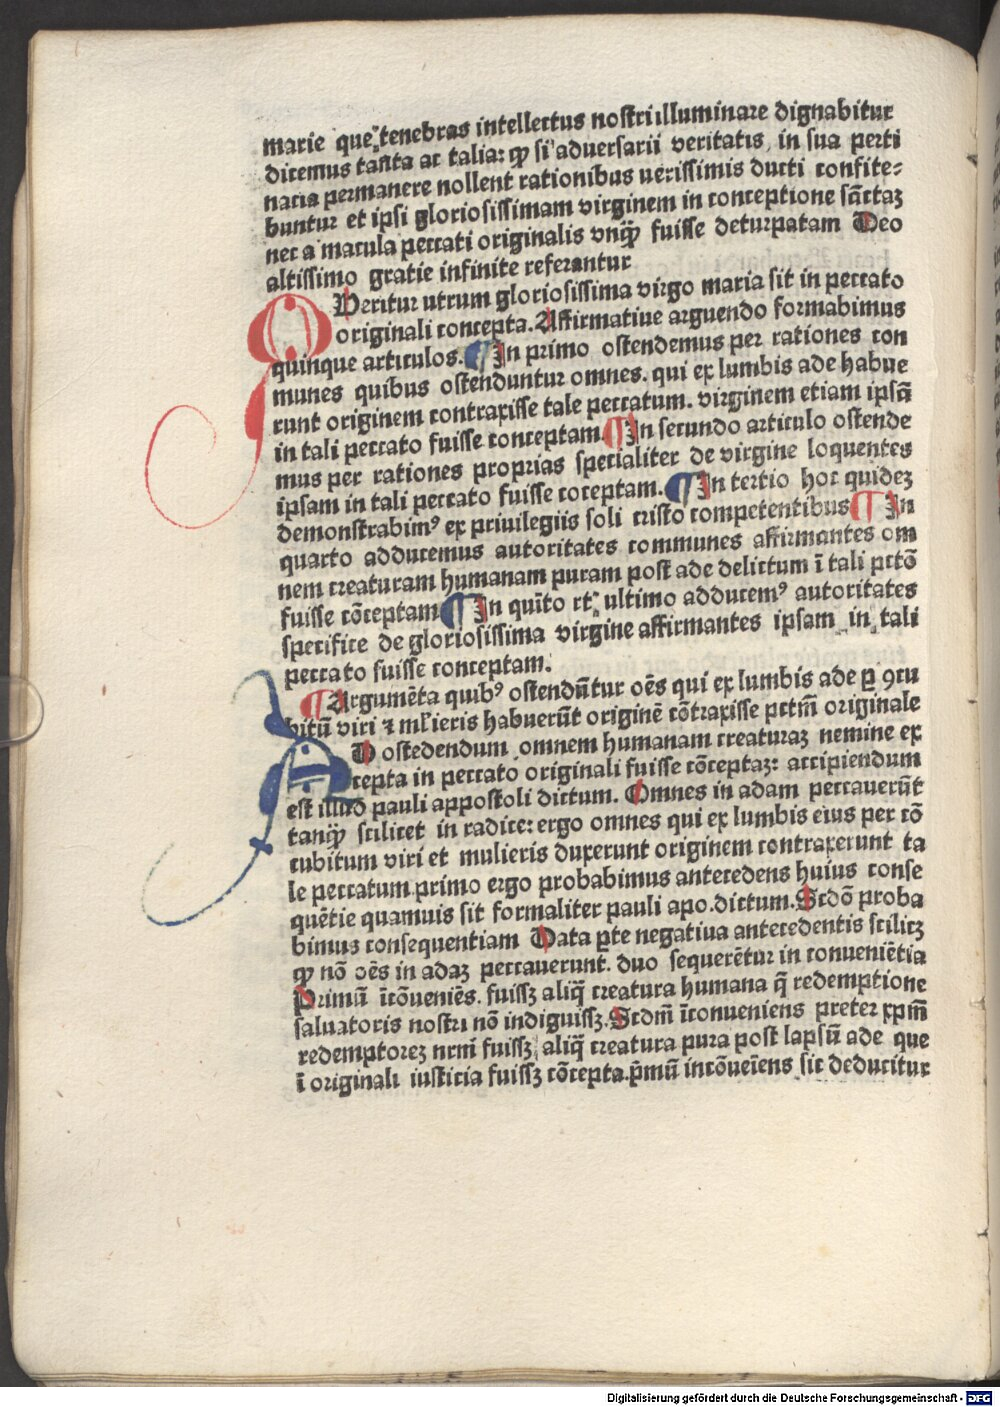 marie que tenebras intellectus nostri illuminare dignabitur
dicemus tanta ac talia: ꝙ si aduersarii veritatis in sua perti
nacia permanere nollent rationibus uerissimis ducti confite⸗
buntur et ipsi gloriosissimam virginem in conceptione sāctaꝫ
nec a macula peccati originalis vnꝙ̄ fuisse deturpatam Deo
altissimo gratie infinite referantur
QVeritur utrum gloriosissima virgo maria sit in peccato
originali concepta. Affirmatiue arguendo formabimus
quinque articulos. ¶ In primo ostendemus per rationes con
munes quibus ostenduntur omnes. qui ex lumbis ade habue
runt originem contraxisse tale peccatum. virginem etiam ipsā
in tali peccato fuisse conceptam ¶ In secundo articulo ostende
mus per rationes proprias specialiter de virgine loquentes
ipsam in tali peccato fuisse coceptam. ¶ In tertio hoc quideꝫ
demonstrabimꝰ ex priuilegiis soli cristo competentibus ¶ In
quarto adducemus autoritates communes affirmantes om
nem creaturam humanam puram post ade delictum ī tali pctō
fuisse cōceptam ¶ In quīto et ultimo adducemꝰ autoritates
specifice de gloriosissima virgine affirmantes ipsam in tali
peccato fuisse conceptam.
¶ Argumēta quibꝰ ostendūtur oēs qui ex lumbis ade ꝑ ꝯcu
bitū viri ⁊ ml̄ieris habuerūt originē cōtraxisse pctm̄ originale
AD ostedendum omnem humanam creaturaꝫ nemine ex
cepta in peccato originali fuisse cōceptaꝫ: accipiendum
est illud pauli appostoli dictum. Omnes in adam peccauerūt
tanꝙ̄ scilicet in radice: ergo omnes qui ex lumbis eius per cō
cubitum viri et mulieris duxerunt originem contraxerunt ta
le peccatum primo ergo probabimus antecedens huius conse
quētie quamuis sit formaliter pauli apo. dictum. Scdō proba
bimus consequentiam Data ꝑte negatiua antecedentis scilicꝫ
ꝙ nō oēs in adaꝫ peccauerunt. duo sequerētur in conueniētia
Primū īcōueniēs. fuissꝫ aliq̄ creatura humana q̄ redemptione
saluatoris nostri nō indiguissꝫ. Scdm̄ īconueniens preter xpm̄
redemptoreꝫ nrm̄ fuissꝫ aliq̄ creatura pura post lapsū ade que
ī originali iusticia fuissꝫ cōcepta. p̄mū incōueīens sic deducitur
Digitalisierung gefördert durch die Deutsche Forschungsgemeinschaft - DFG